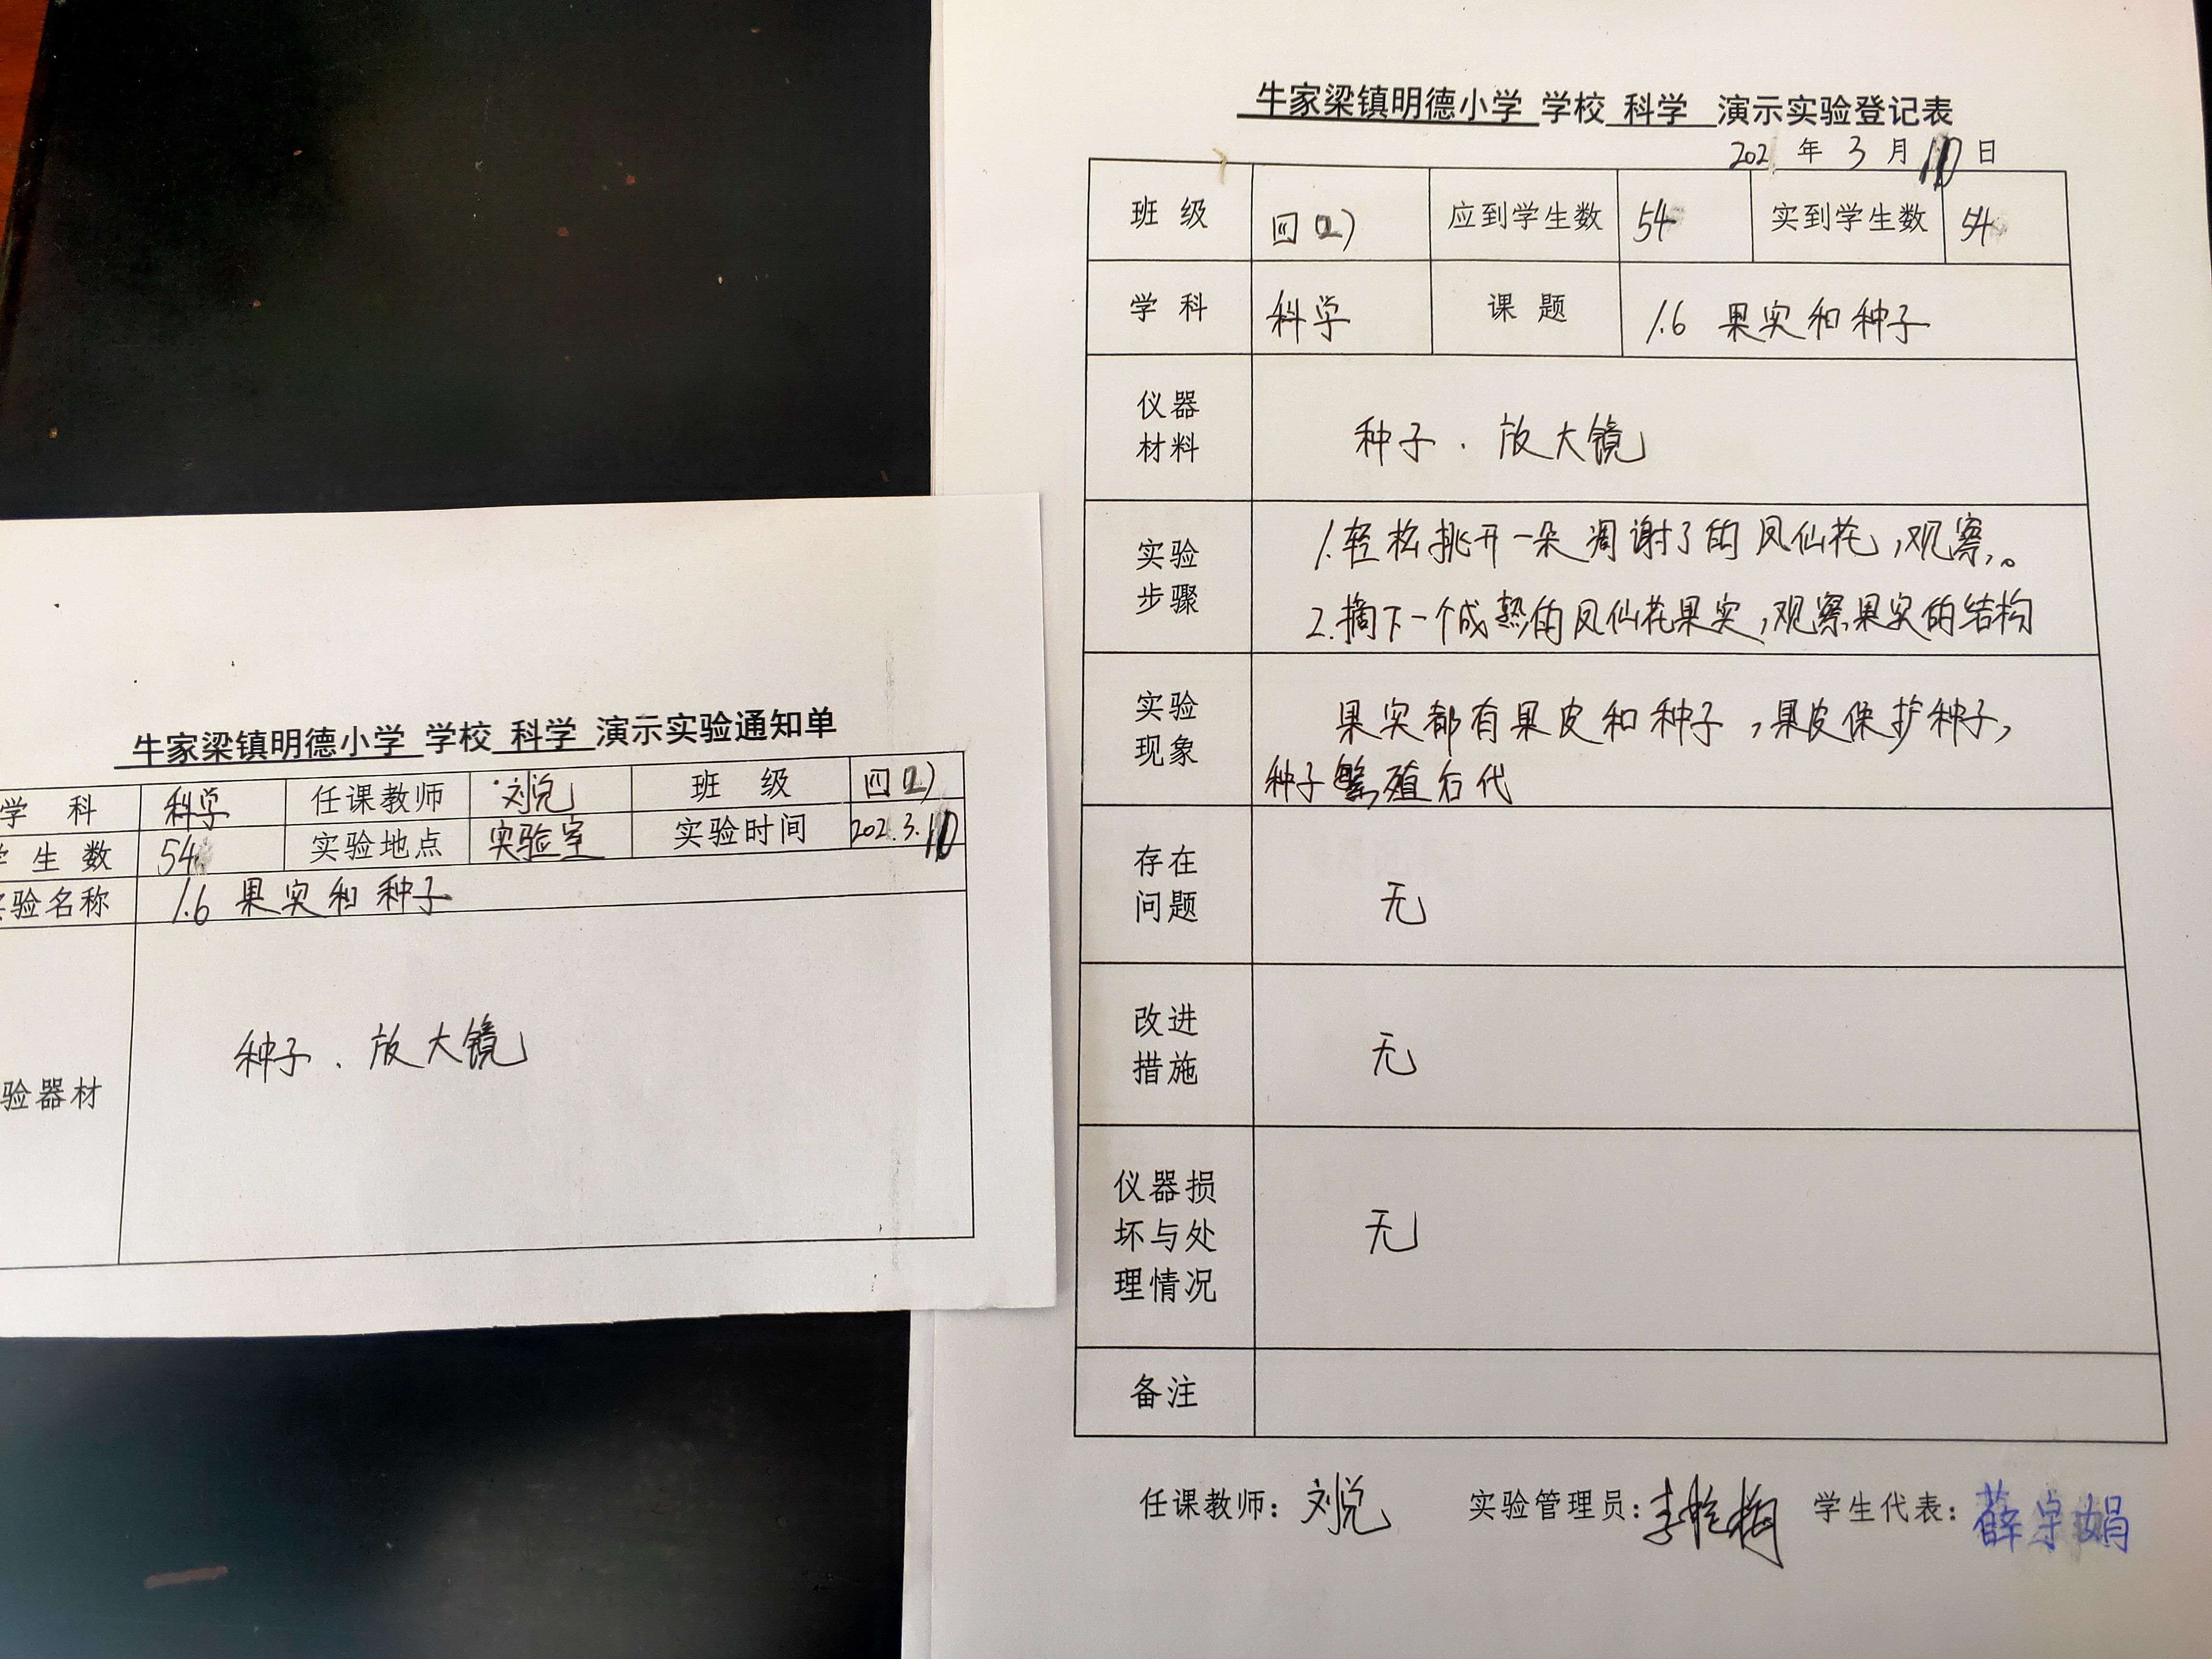 牛家梁镇明德小学 学校 科学 演示实验通知单
学 科 科学 任课教师 刘悦 班 级 四(2)
生 数 54 实验地点 实验室 实验时间 202.3.10
验名称 1.6 果实和种子
验器材 种子、放大镜
牛家梁镇明德小学 学校 科学 演示实验登记表
202 年 3 月 10 日
班 级 四(2) 应到学生数 54 实到学生数 54
学 科 科学 课 题 1.6 果实和种子
仪器
材料
种子、放大镜
实验
步骤
1.轻松挑开一朵凋谢了的凤仙花,观察,。
2.摘下一个成熟的凤仙花果实,观察果实的结构
实验
现象
果实都有果皮和种子,果皮保护种子,
种子繁殖后代
存在
问题
无
改进
措施
无
仪器损
坏与处
理情况
无
备注
任课教师: 刘悦 实验管理员: 李 梅 学生代表: 薛 娟